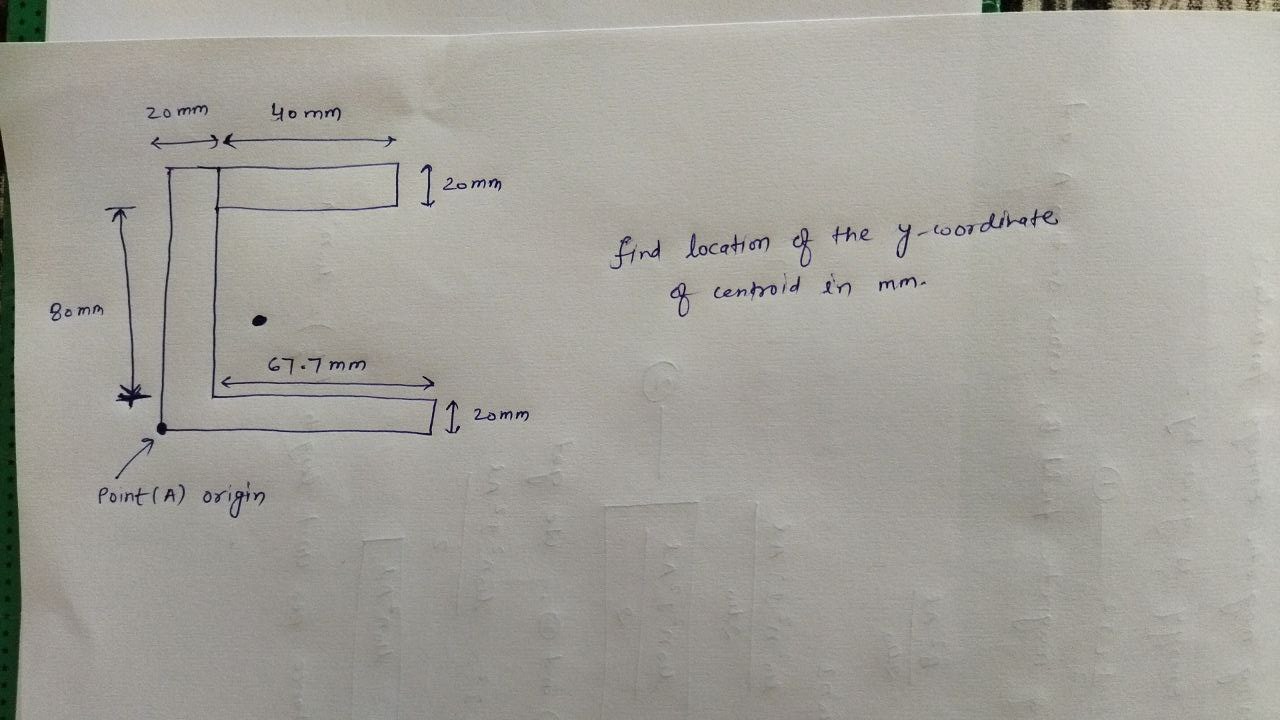 20mm 40mm
20mm
find location of the y-coordinate
of centroid in mm.
80mm
67.7mm
20mm
Point(A) origin